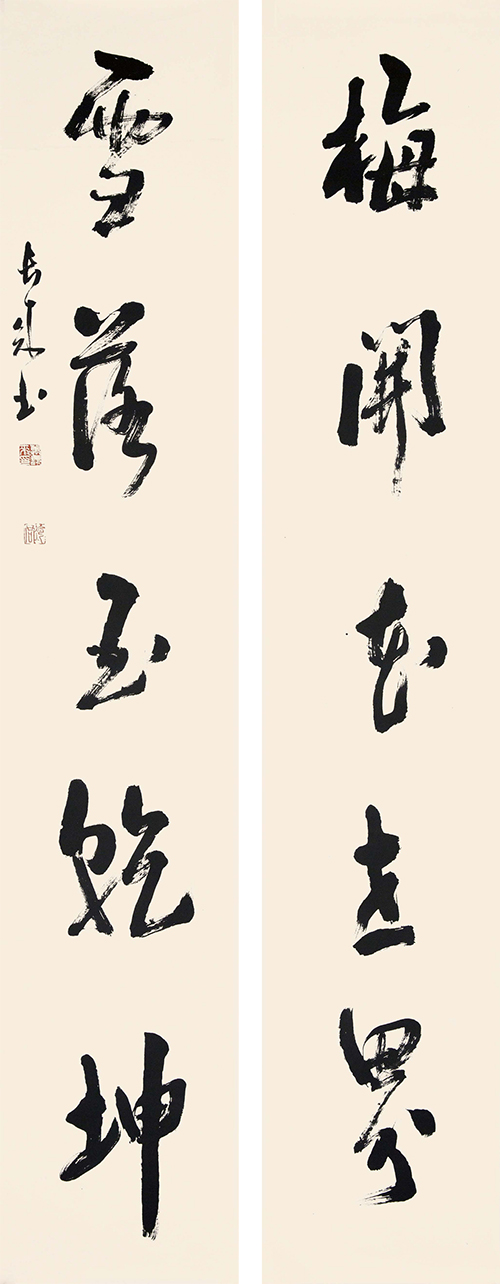 梅開花世界
雪落玉乾坤